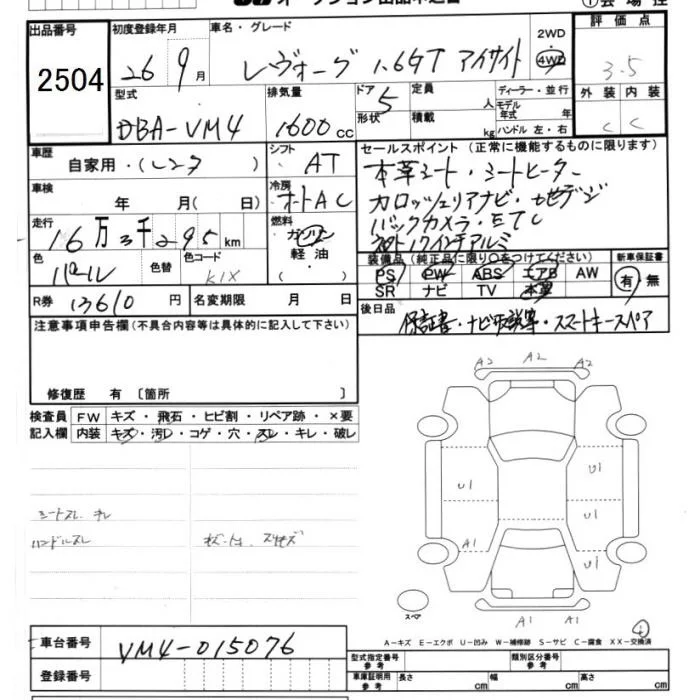 出品番号 初度登録年月 車名・グレード 2WD 4WD 評価点
2504 26 9月 レヴォーグ 1.6GT アイサイト 3.5
型式 排気量 ドア 5 定員 人 ディーラー・並行 外装 内装
DBA-VM4 1600 CC 形状 積載 kg モデル年式 年 ハンドル 左・右 C C
車歴 自家用・(レンタ ) シフト AT セールスポイント(正常に機能するものに限ります)
車検 年 月(日) 冷房 オートAC 本革シート・シートヒーター
カロッツェリアナビ・地デジ
走行 16万3千295km 燃料 ガソリン 軽油 ・( ) バックカメラ・ETC
17インチアルミ
色 パール 色替 色コード K1X 装備品(純正品に限り○をつけてください) 新車保証書
PS PW ABS エアB AW 有・無
SR ナビ TV 本革
R券 13610 円 名変期限 月 日 後日品
保証書・ナビ取説等・スマートキースペア
注意事項申告欄(不具合内容等は具体的に記入して下さい)
修復歴 有 〔箇所 〕
検査員 FW キズ・飛石・ヒビ割・リペア跡・×要
記入欄 内装 キズ・汚レ・コゲ・穴・スレ・キレ・破レ
シートスレ キレ
ハンドルスレ
A2 A2 A2
U1 U1 U1
A1 U1
A1 A1
スペア
A-キズ E-エクボ U-凹み W-補修跡 S-サビ C-腐食 XX-交換済
車台番号 VM4-015076
登録番号
型式指定番号 参考 類別区分番号 参考
車庫証明用 参考 長さ cm 幅 cm 高さ cm